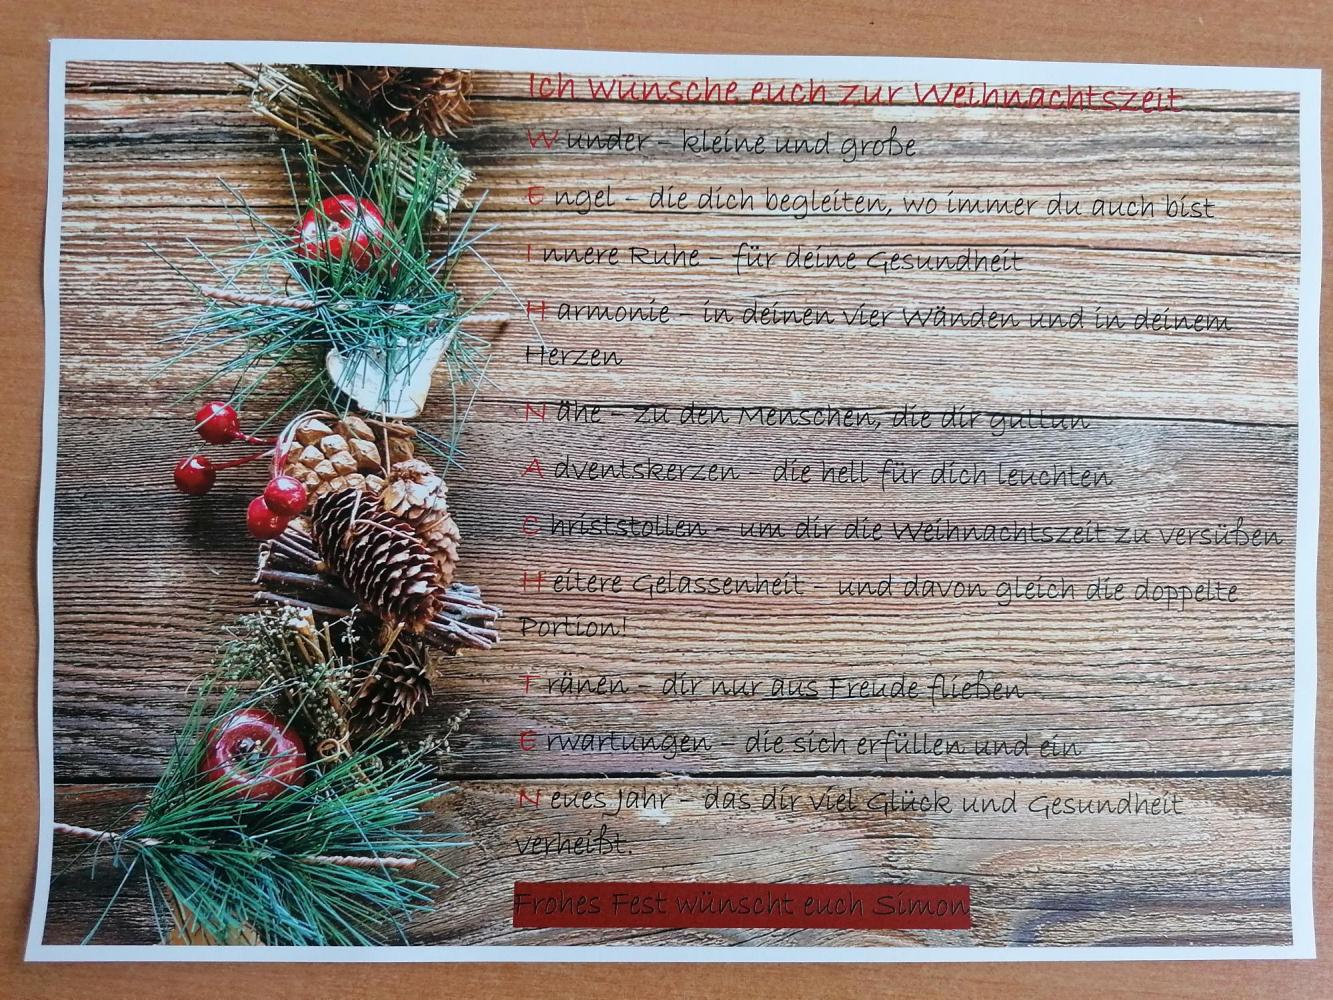 Ich wünsche euch zur Weihnachtszeit
W under – kleine und große
E ngel – die dich begleiten, wo immer du auch bist
I nnere Ruhe – für deine Gesundheit
H armonie – in deinen vier Wänden und in deinem
Herzen
N ähe – zu den Menschen, die dir guttun
A dventskerzen – die hell für dich leuchten
C hriststollen – um dir die Weihnachtszeit zu versüßen
H eitere Gelassenheit – und davon gleich die doppelte
Portion!
T ränen – dir nur aus Freude fließen
E rwartungen – die sich erfüllen und ein
N eues Jahr – das dir viel Glück und Gesundheit
verheißt.
Frohes Fest wünscht euch Simon